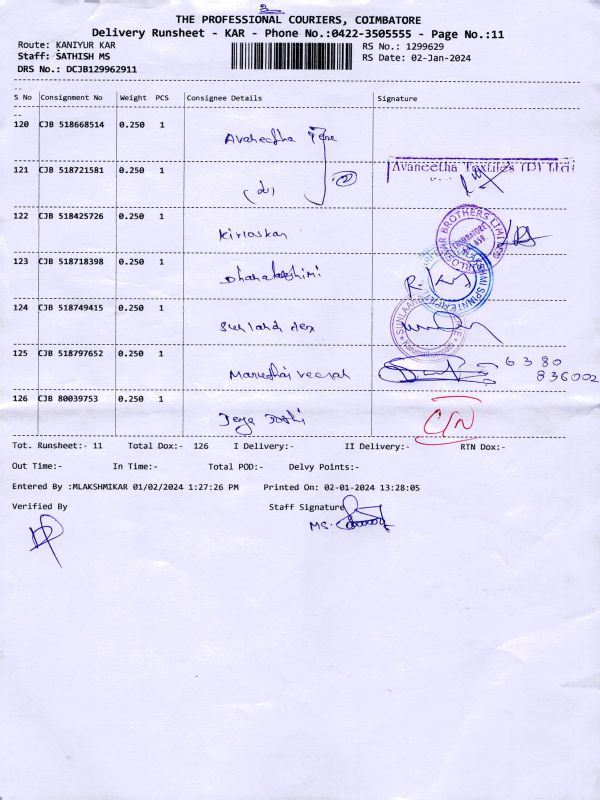 THE PROFESSIONAL COURIERS, COIMBATORE
Delivery Runsheet - KAR - Phone No.:0422-3505555 - Page No.:11
Route: KANIYUR KAR RS No.: 1299629
Staff: SATHISH MS RS Date: 02-Jan-2024
DRS No.: DCJB129962911
S No Consignment No Weight PCS Consignee Details Signature
120 CJB 518668514 0.250 1
Avaneetha
121 CJB 518721581 0.250 1 Avaneetha Textiles (P) Ltd
122 CJB 518425726 0.250 1
Kirloskar
123 CJB 518718398 0.250 1
Dhanalakshimi
124 CJB 518749415 0.250 1
Sunland
125 CJB 518797652 0.250 1 6380
836002
126 CJB 80039753 0.250 1
Jeya C/N
Tot. Runsheet:- 11 Total Dox:- 126 I Delivery:- II Delivery:- RTN Dox:-
Out Time:- In Time:- Total POD:- Delvy Points:-
Entered By :MLAKSHMIKAR 01/02/2024 1:27:26 PM Printed On: 02-01-2024 13:28:05
Verified By Staff Signature
MS.